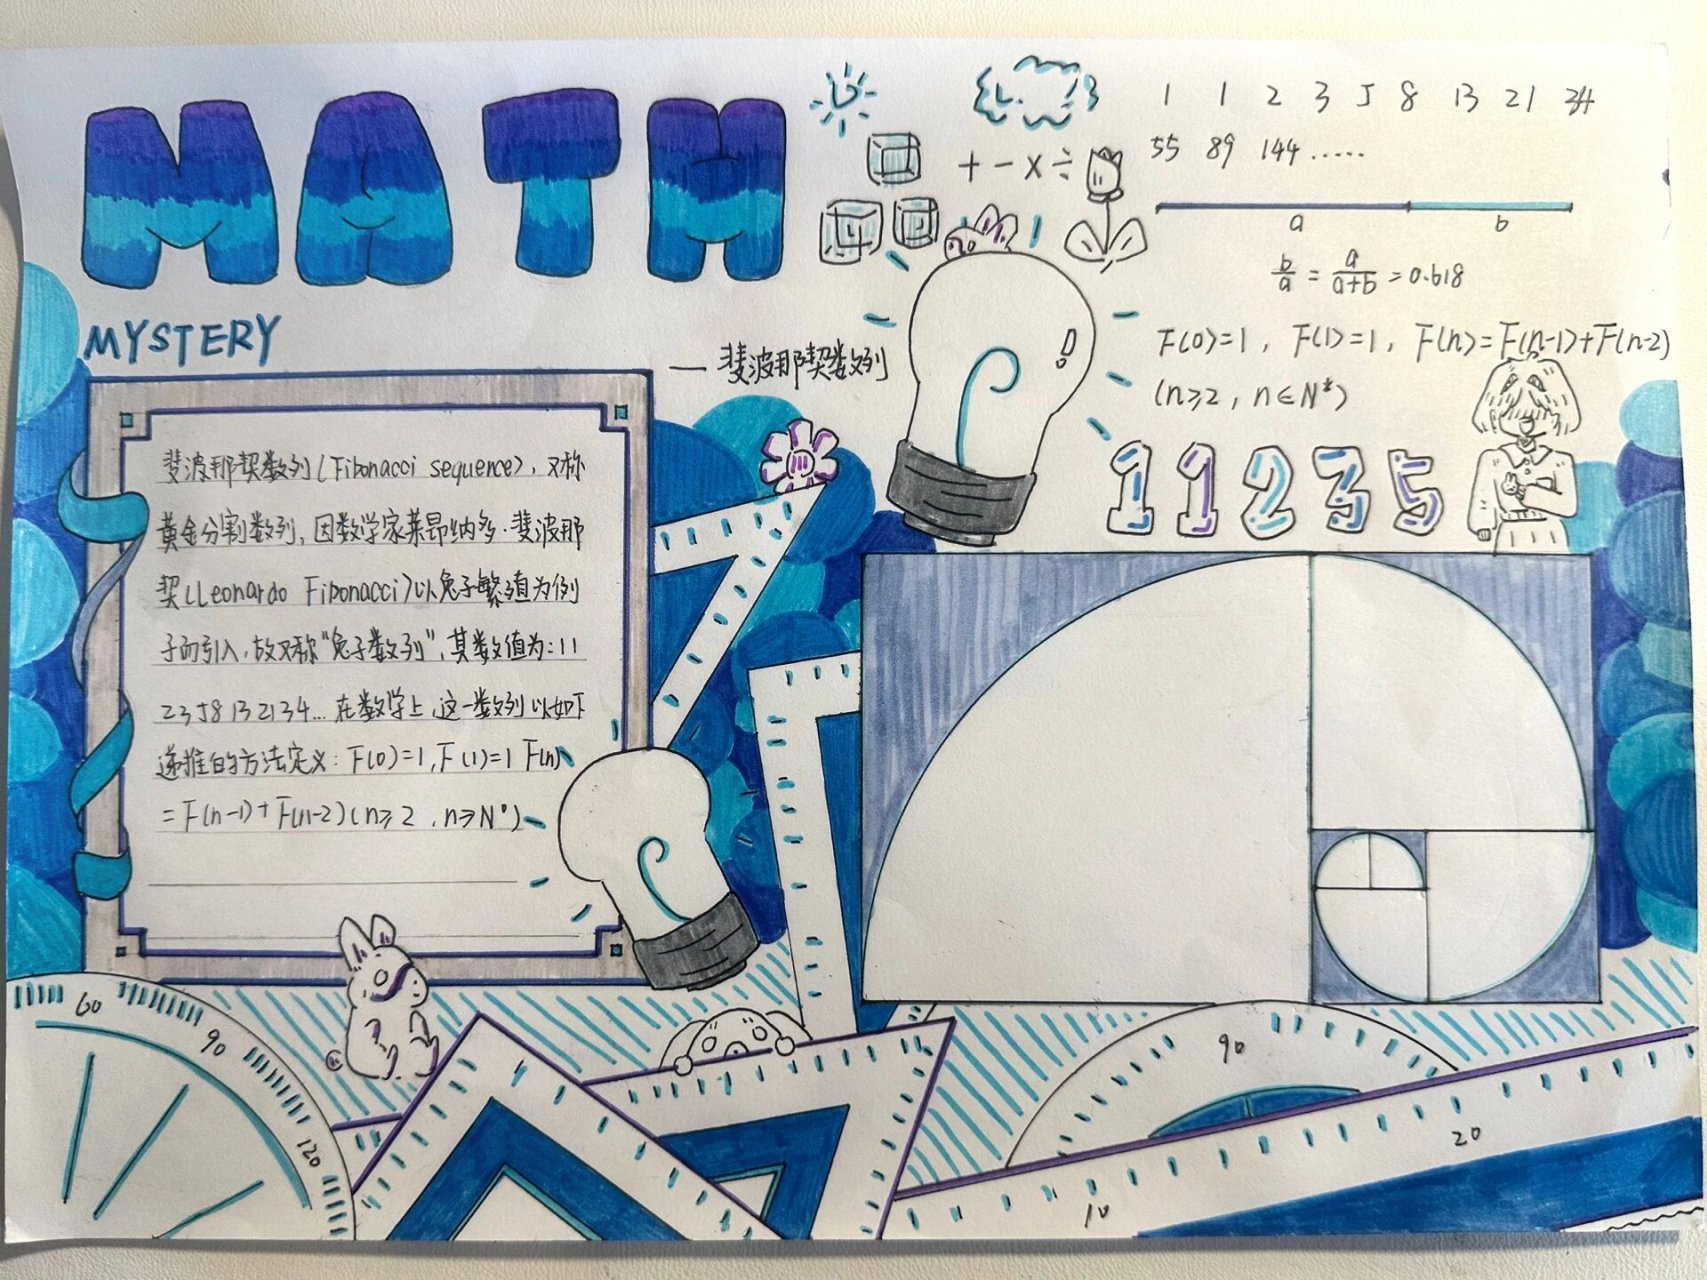 MATH
MYSTERY
— 斐波那契数列
斐波那契数列(Fibonacci sequence), 又称
黄金分割数列, 因数学家莱昂纳多·斐波那
契(Leonardo Fibonacci)以兔子繁殖为例
子而引入, 故又称"兔子数列", 其数值为: 1 1
2 3 5 8 13 21 34... 在数学上, 这一数列以如下
递推的方法定义: F(0)=1, F(1)=1 F(n)
=F(n-1)+F(n-2)(n≥2, n≥N*)
+ - × ÷
1 1 2 3 5 8 13 21 34
55 89 144 ......
a b
b/a = a/a+b = 0.618
F(0)=1, F(1)=1, F(n)=F(n-1)+F(n-2)
(n≥2, n∈N*)
1 1 2 3 5
60 90 120
90
10 20